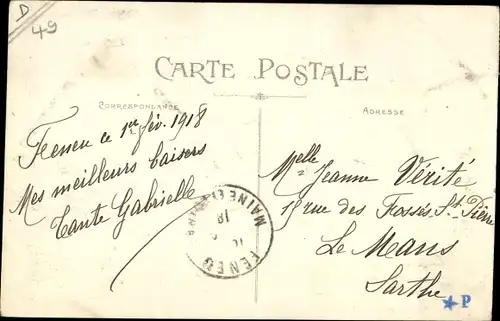 D
49
CARTE POSTALE
CORRESPONDANCE
ADRESSE
Feneu ce 1er fév. 1918
Mes meilleurs baisers
Tante Gabrielle
Melle Jeanne Vérité
rue des Fossés St. Pierre
Le Mans
Sarthe
MAINE ET
18
FENEU
P